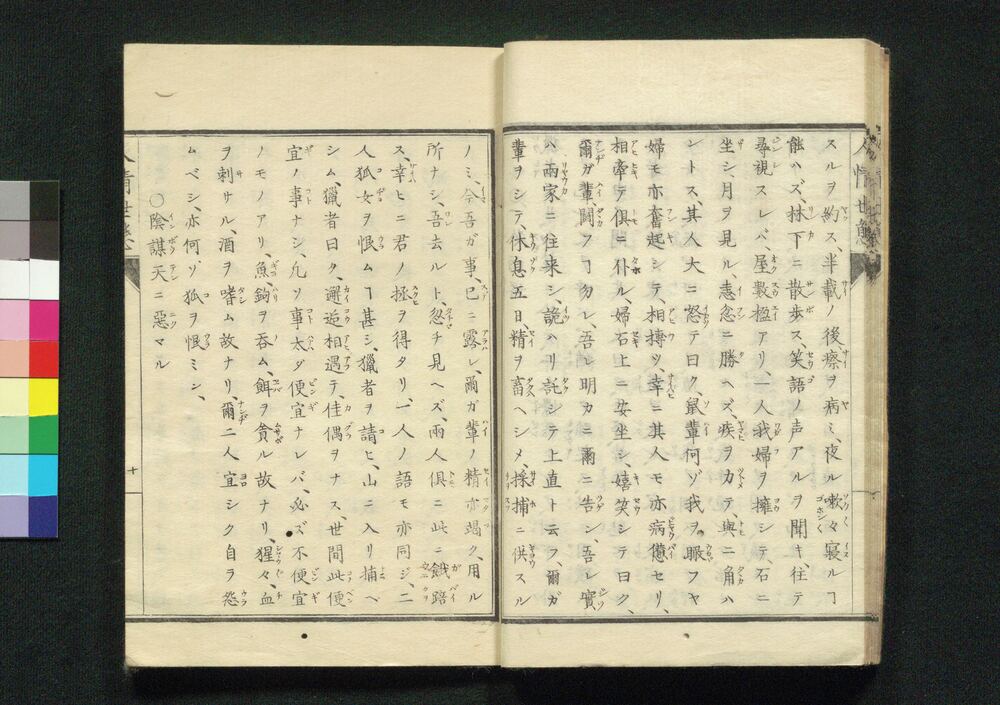 スルヲ約ス、半載ノ後瘵ヲ病ミ、夜ル嗽々寝ルヿ
能ハズ、林下ニ散歩ス、笑語ノ声アルヲ聞キ、往テ
尋視スレバ、屋數楹アリ、一人我婦ヲ擁シテ、石ニ
坐シ、月ヲ見ル、恚忿ニ勝ヘズ、疾ヲ力テ、與ニ角ハ
ントス、其人大ニ怒テ曰ク、鼠輩何ゾ我ヲ眼フヤ
婦モ亦奮起シテ、相摶ツ、幸ニ其人モ亦病憊セリ、
相牽テ俱ニ仆ル、婦石上ニ安坐シ、嬉笑シテ曰ク、
爾ガ輩、鬪フヿ勿レ、吾レ明カニ爾ニ告ン、吾レ實、
ハ兩家ニ往来シ、詭ハリ託シテ上直ト云フ、爾ガ
輩ヲシテ、休息五日、精ヲ畜ヘシメ、採捕ニ供スル
ノミ、今吾ガ事、已ニ露レ、爾ガ輩ノ精亦竭ク、用ル
所ナシ、吾去ルト、忽チ見ヘズ、兩人俱ニ此ニ餓踣
ス、幸ヒニ君ノ拯ヲ得タリ、一人ノ語モ亦同ジ、二
人狐女ヲ恨ムヿ甚シ、獵者ヲ請ヒ、山ニ入リ捕ヘ
シム、獵者曰ク、邂逅相遇テ、佳偶ヲナス、世間此便
宜ノ事ナシ、凡ソ事太ダ便宜ナレバ、必ズ不便宜
ノモノアリ、魚鉤ヲ呑ム、餌ヲ貪ル故ナリ、猩々、血
ヲ刺サル、酒ヲ嗜ム故ナリ、爾二人宜シク自ラ怨
ムベシ、亦何ゾ狐ヲ恨ミン、
○陰謀天ニ惡マル
十
人情世態